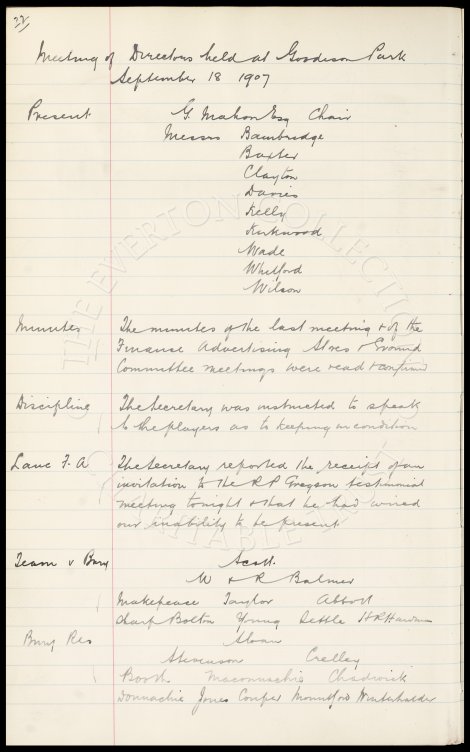 22/
Meeting of Directors held at Goodison Park
September 18 1907
Present G. Mahon Esq Chair
Messrs Bainbridge
Baxter
Clayton
Davies
Kelly
Kirkwood
Wade
Whitford
Wilson
Minutes The minutes of the last meeting & of the
Finance Advertising Stores & Ground
Committee meetings were read &
Discipline The Secretary was instructed to speak
to the players as to keeping in condition
Lanc F. A The Secretary reported the receipt of an
invitation to the R P Gregson testimonial
meeting tonight & that he had wired
our inability to be present
Team v Bury Scott.
W & R Balmer
Makepeace Taylor Abbott
Sharp Bolton Young Settle H P Hardman
Bury Res Sloan
Stevenson Crelley
Booth Maconnachie Chadwick
Donnachie Jones Couper Mountford Winterhalder
THE EVERTON COLLECTION
CHARITABLE